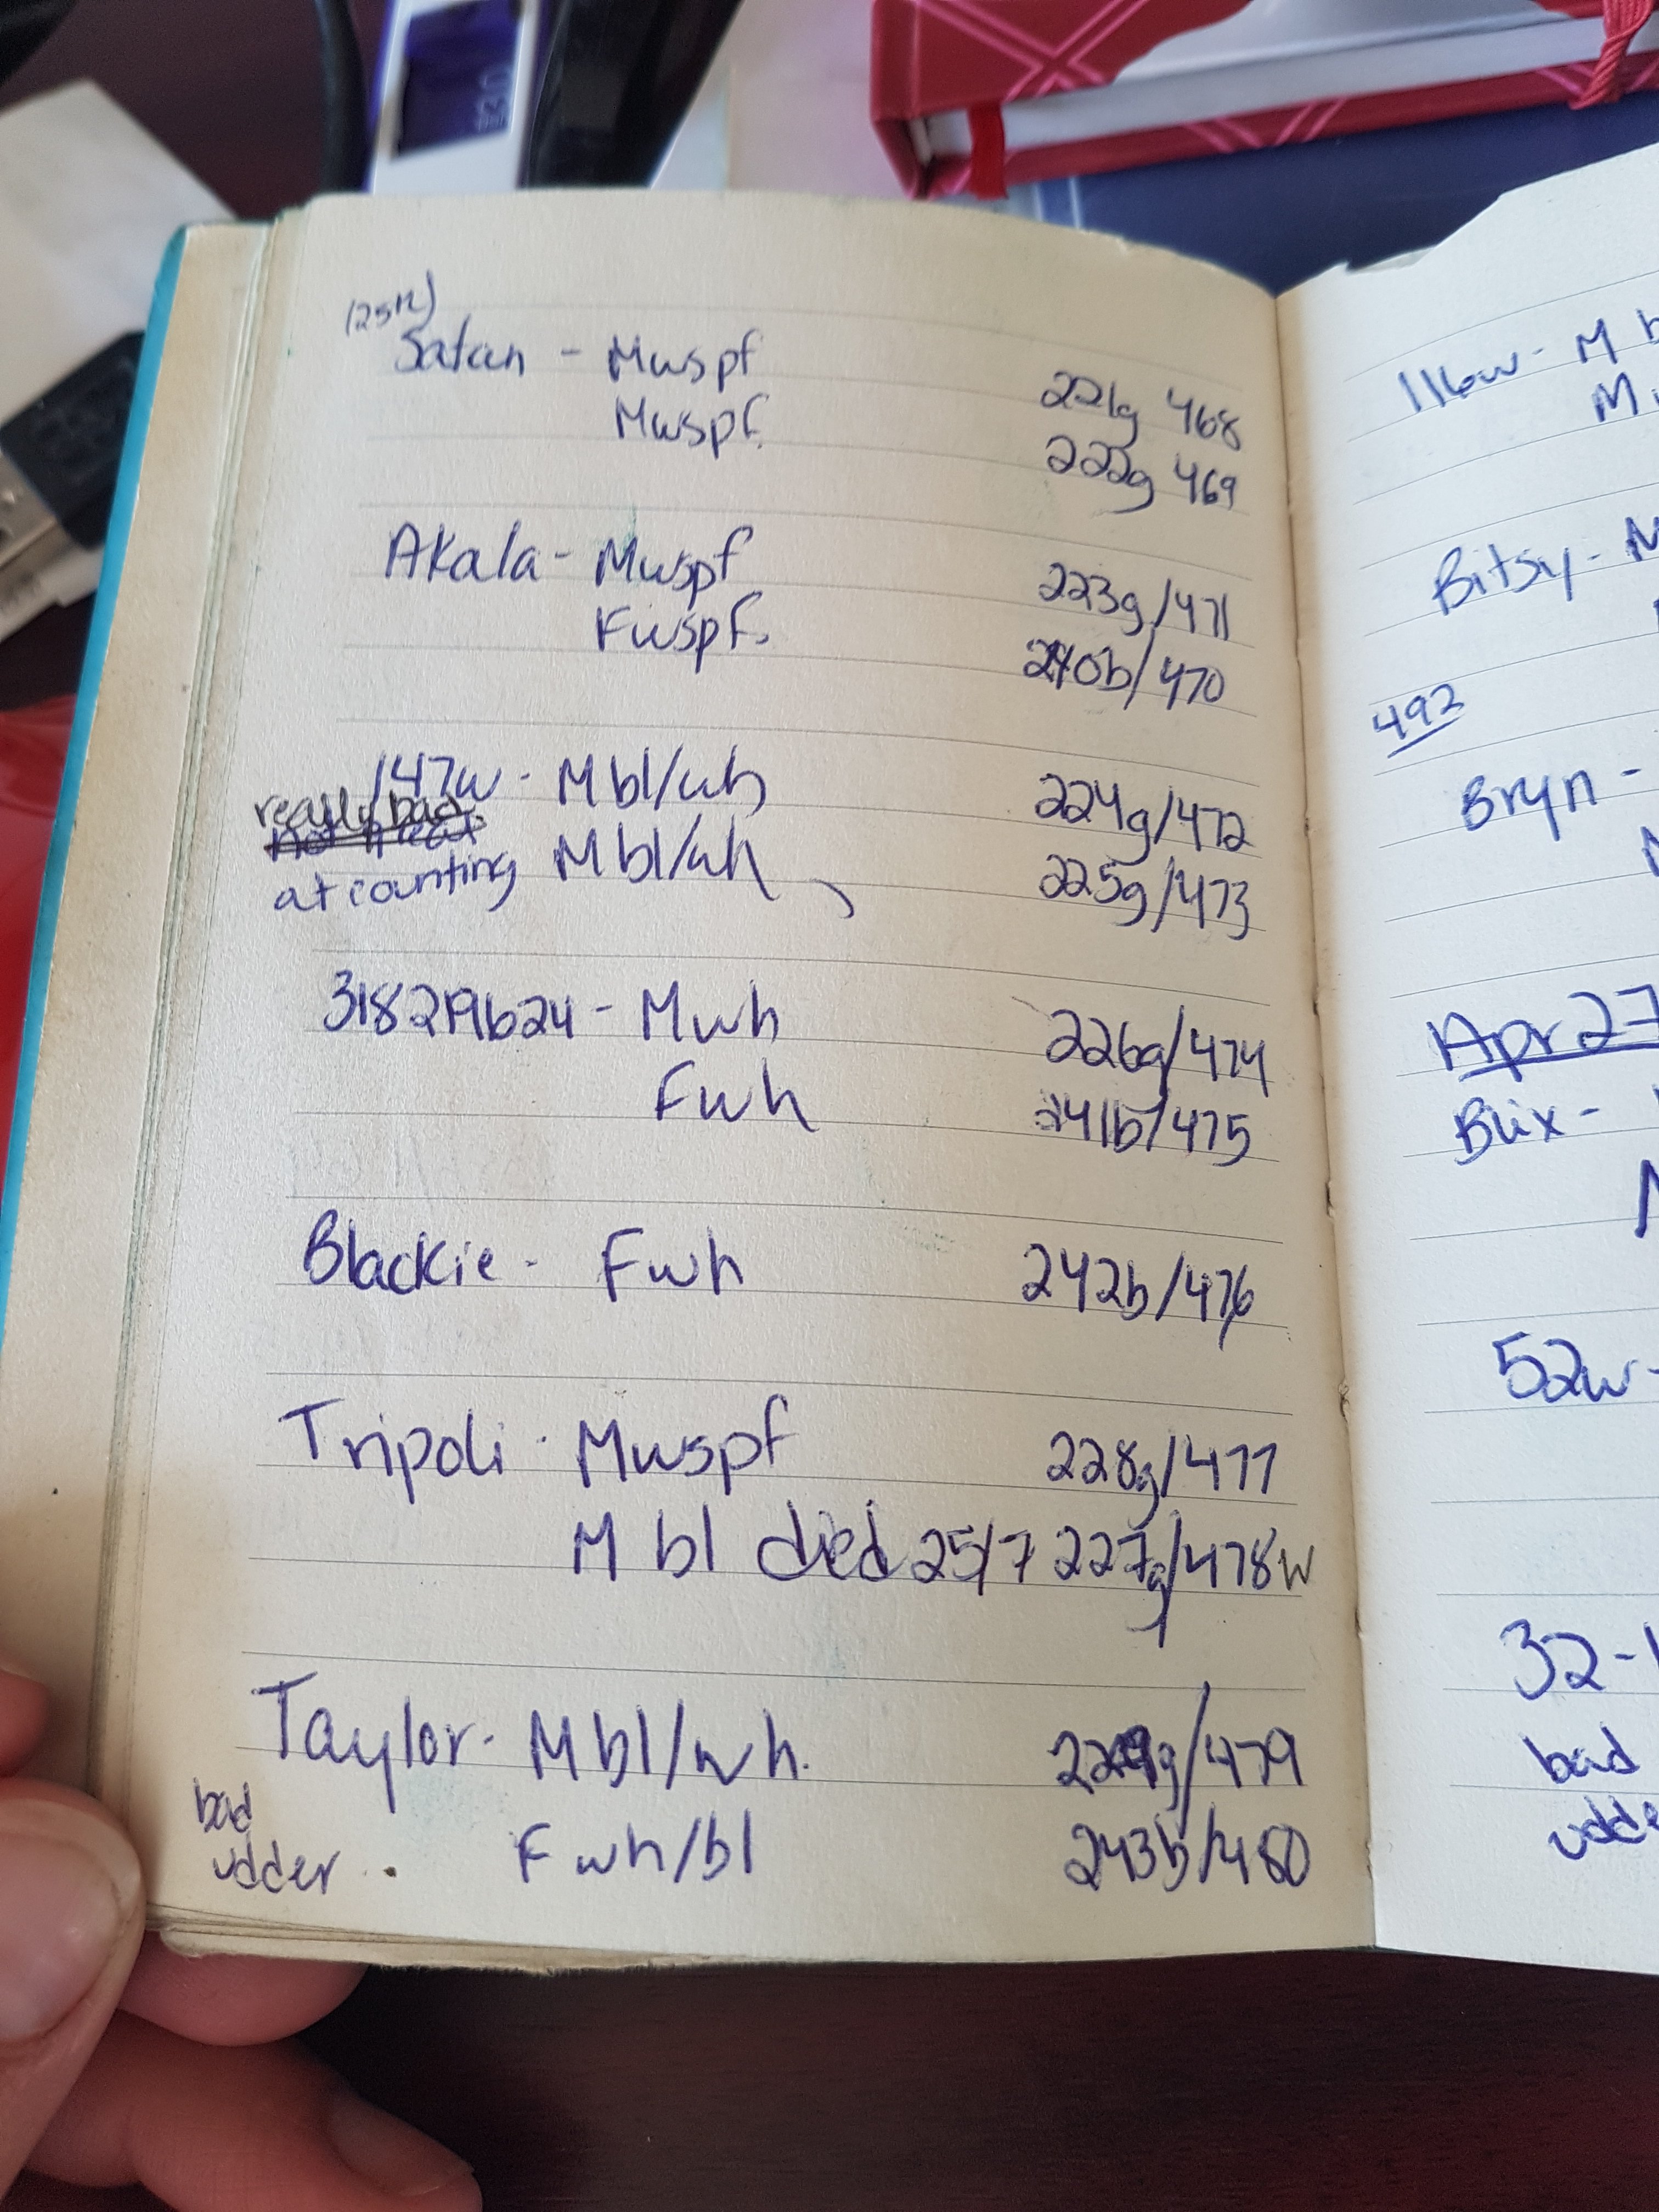 (25th)
Satan - Mwspf 221g 468
Mwspf. 222g 469
Akala - Mwspf 223g/471
Fwspf. 240b/470
147w - M bl/wh 224g/472
really bad
at counting M bl/wh 225g/473
318219b24 - Mwh 226g/474
Fwh 241b/475
Blackie - Fwh 242b/476
Tripoli - Mwspf 228g/477
M bl died 25/7 227g/478w
Taylor - M bl/wh. 229g/479
bad
udder. F wh/bl 243b/480
116w - M b
M
Bitsy - M
493
Bryn -
Apr 27
Blix -
52w -
32 -
bad
udde